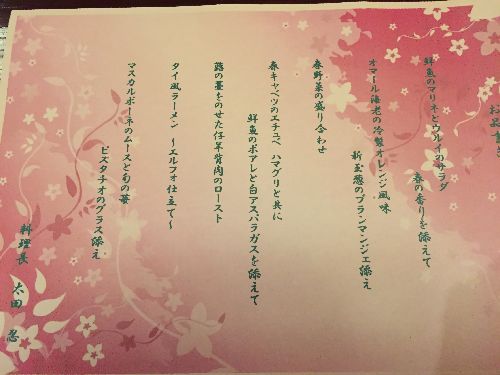 鮮魚のマリネとウルイのサラダ
春の香りを添えて
オマール海老の冷製オレンジ風味
新玉葱のブランマンジェ添え
春野菜の盛り合わせ
春キャベツのエチュベ ハマグリと共に
鮮魚のポアレと白アスパラガスを添えて
蕗の薹をのせた仔羊背肉のロースト
タイ風ラーメン ～エルフォ仕立て～
マスカルポーネのムースと旬の苺
ピスタチオのグラス添え
料理長 太田 忍